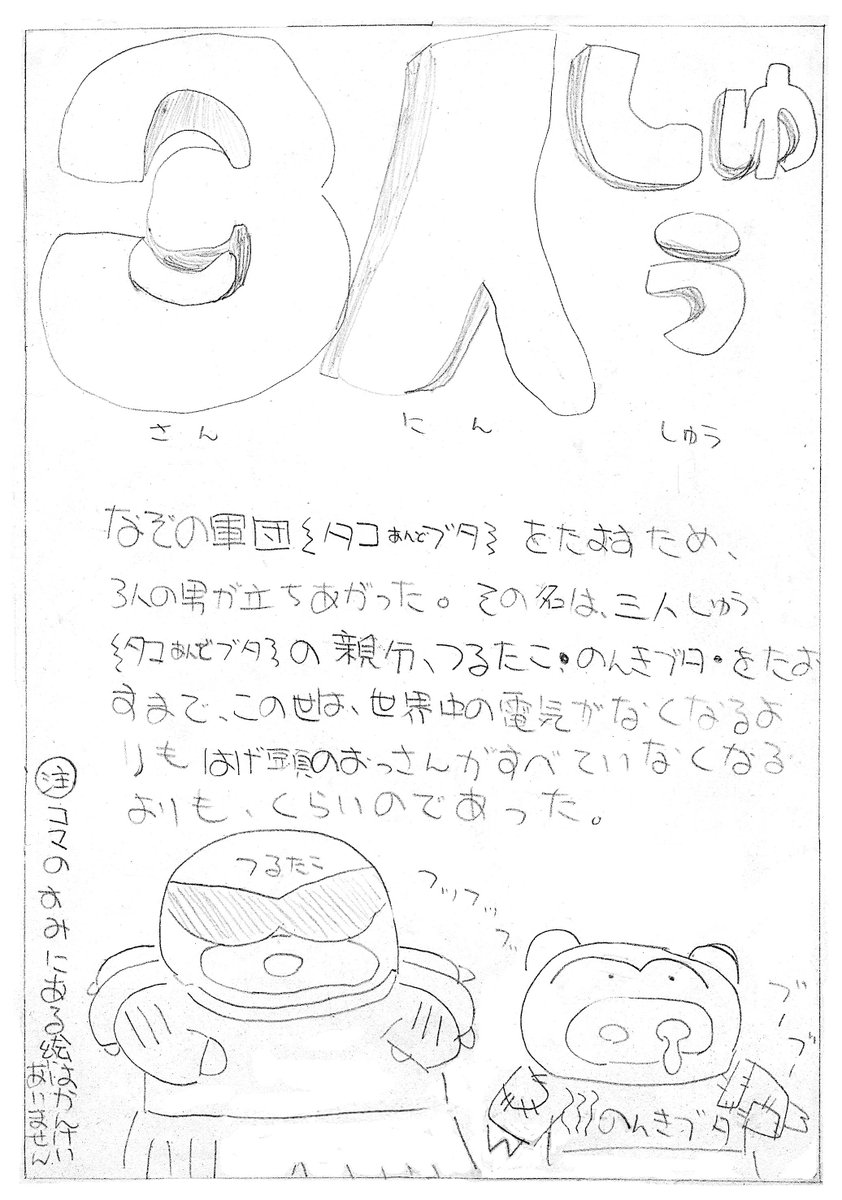 3人しゅう
さん にん しゅう
なぞの軍団ミタコあんどブタミをたおすため、
3人の男が立ちあがった。その名は、三人じゅう
ミタコあんどブタミの親分、つるたこ・のんきブタ・をたお
すまで、この世は、世界中の電気がなくなるよ
りもはげ頭のおっさんがすべていなくなる
よりも、くらいのであった。
つるたこ
フッフッフッ
ブーブー
のんきブタ
注 コマのすみにある絵はかんけい
ありません